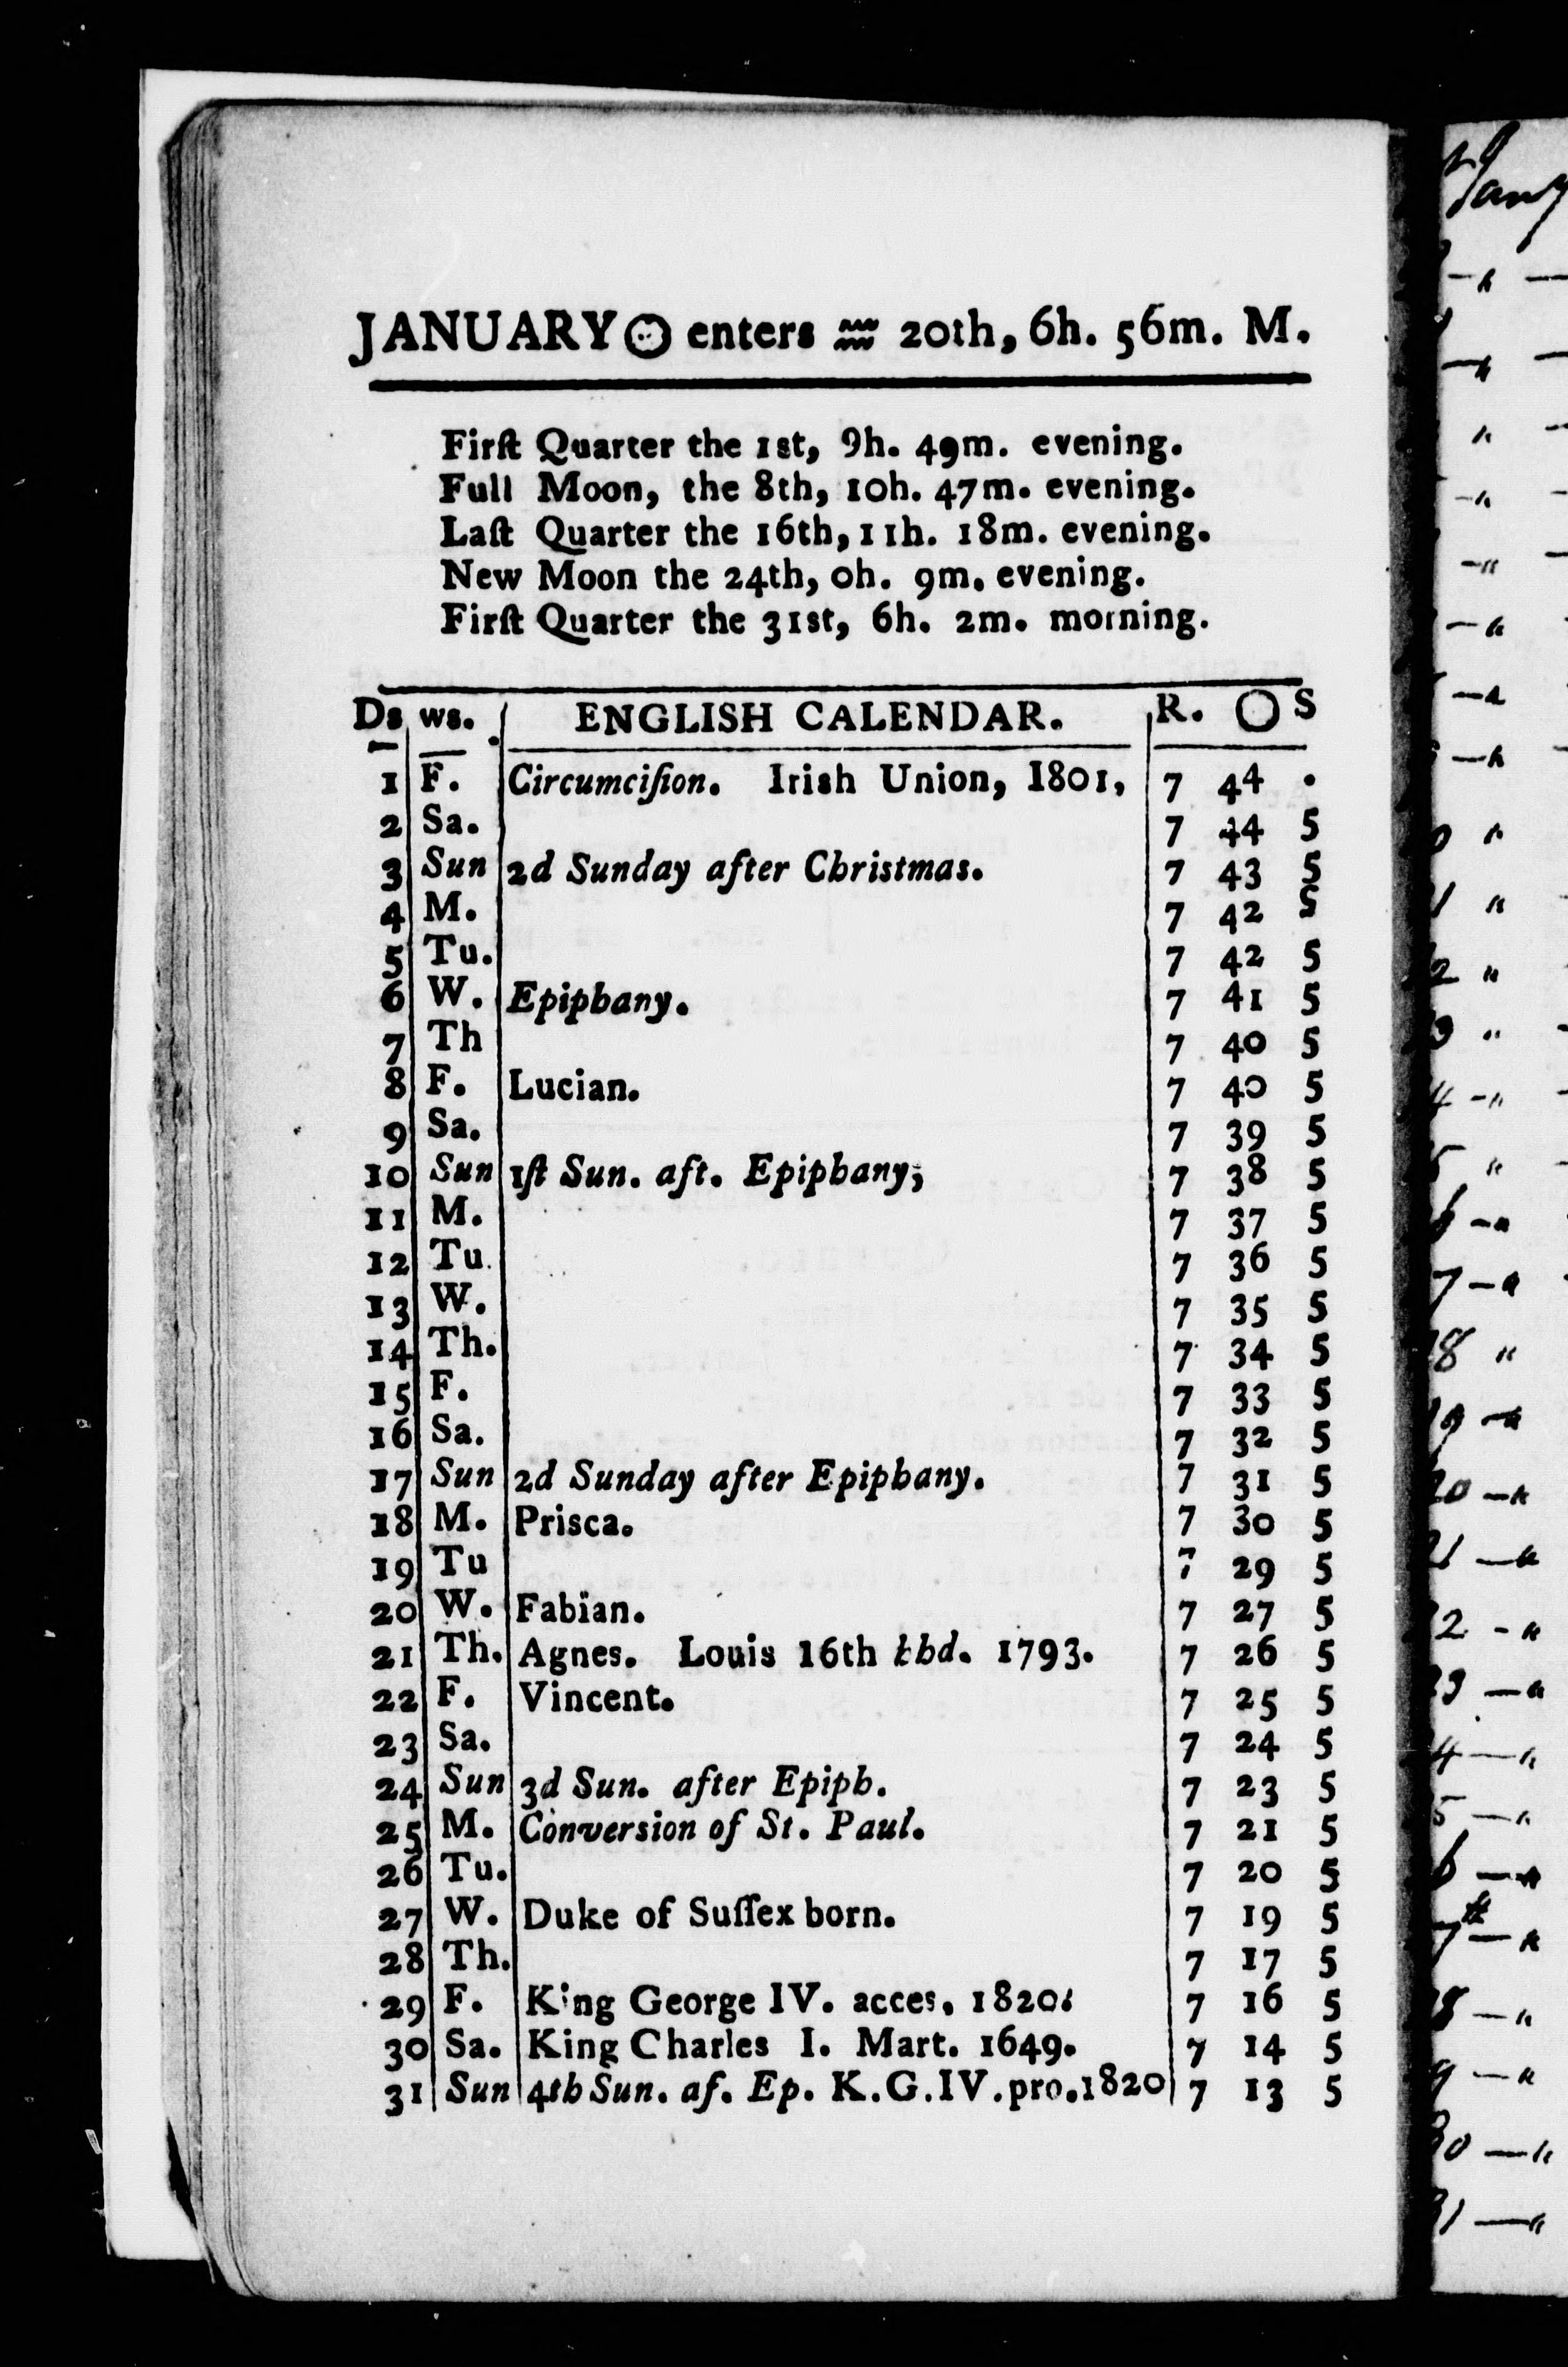 JANUARY☉ enters ♒ 20th, 6h. 56m. M.
Firſt Quarter the 1st, 9h. 49m. evening.
Full Moon, the 8th, 10h. 47m. evening.
Laſt Quarter the 16th, 11h. 18m. evening.
New Moon the 24th, 0h. 9m. evening.
Firſt Quarter the 31st, 6h. 2m. morning.
Ds ws. ENGLISH CALENDAR. R. ◯ S
1 F. Circumciſion. Irish Union, 1801, 7 44 .
2 Sa. 7 44 5
3 Sun 2d Sunday after Christmas. 7 43 5
4 M. 7 42 5
5 Tu. 7 42 5
6 W. Epiphany. 7 41 5
7 Th 7 40 5
8 F. Lucian. 7 40 5
9 Sa. 7 39 5
10 Sun 1ſt Sun. aft. Epiphany, 7 38 5
11 M. 7 37 5
12 Tu. 7 36 5
13 W. 7 35 5
14 Th. 7 34 5
15 F. 7 33 5
16 Sa. 7 32 5
17 Sun 2d Sunday after Epiphany. 7 31 5
18 M. Prisca. 7 30 5
19 Tu 7 29 5
20 W. Fabian. 7 27 5
21 Th. Agnes. Louis 16th bhd. 1793. 7 26 5
22 F. Vincent. 7 25 5
23 Sa. 7 24 5
24 Sun 3d Sun. after Epiph. 7 23 5
25 M. Conversion of St. Paul. 7 21 5
26 Tu. 7 20 5
27 W. Duke of Suſſex born. 7 19 5
28 Th. 7 17 5
29 F. King George IV. acces. 1820. 7 16 5
30 Sa. King Charles I. Mart. 1649. 7 14 5
31 Sun 4th Sun. af. Ep. K.G.IV.pro.1820 7 13 5